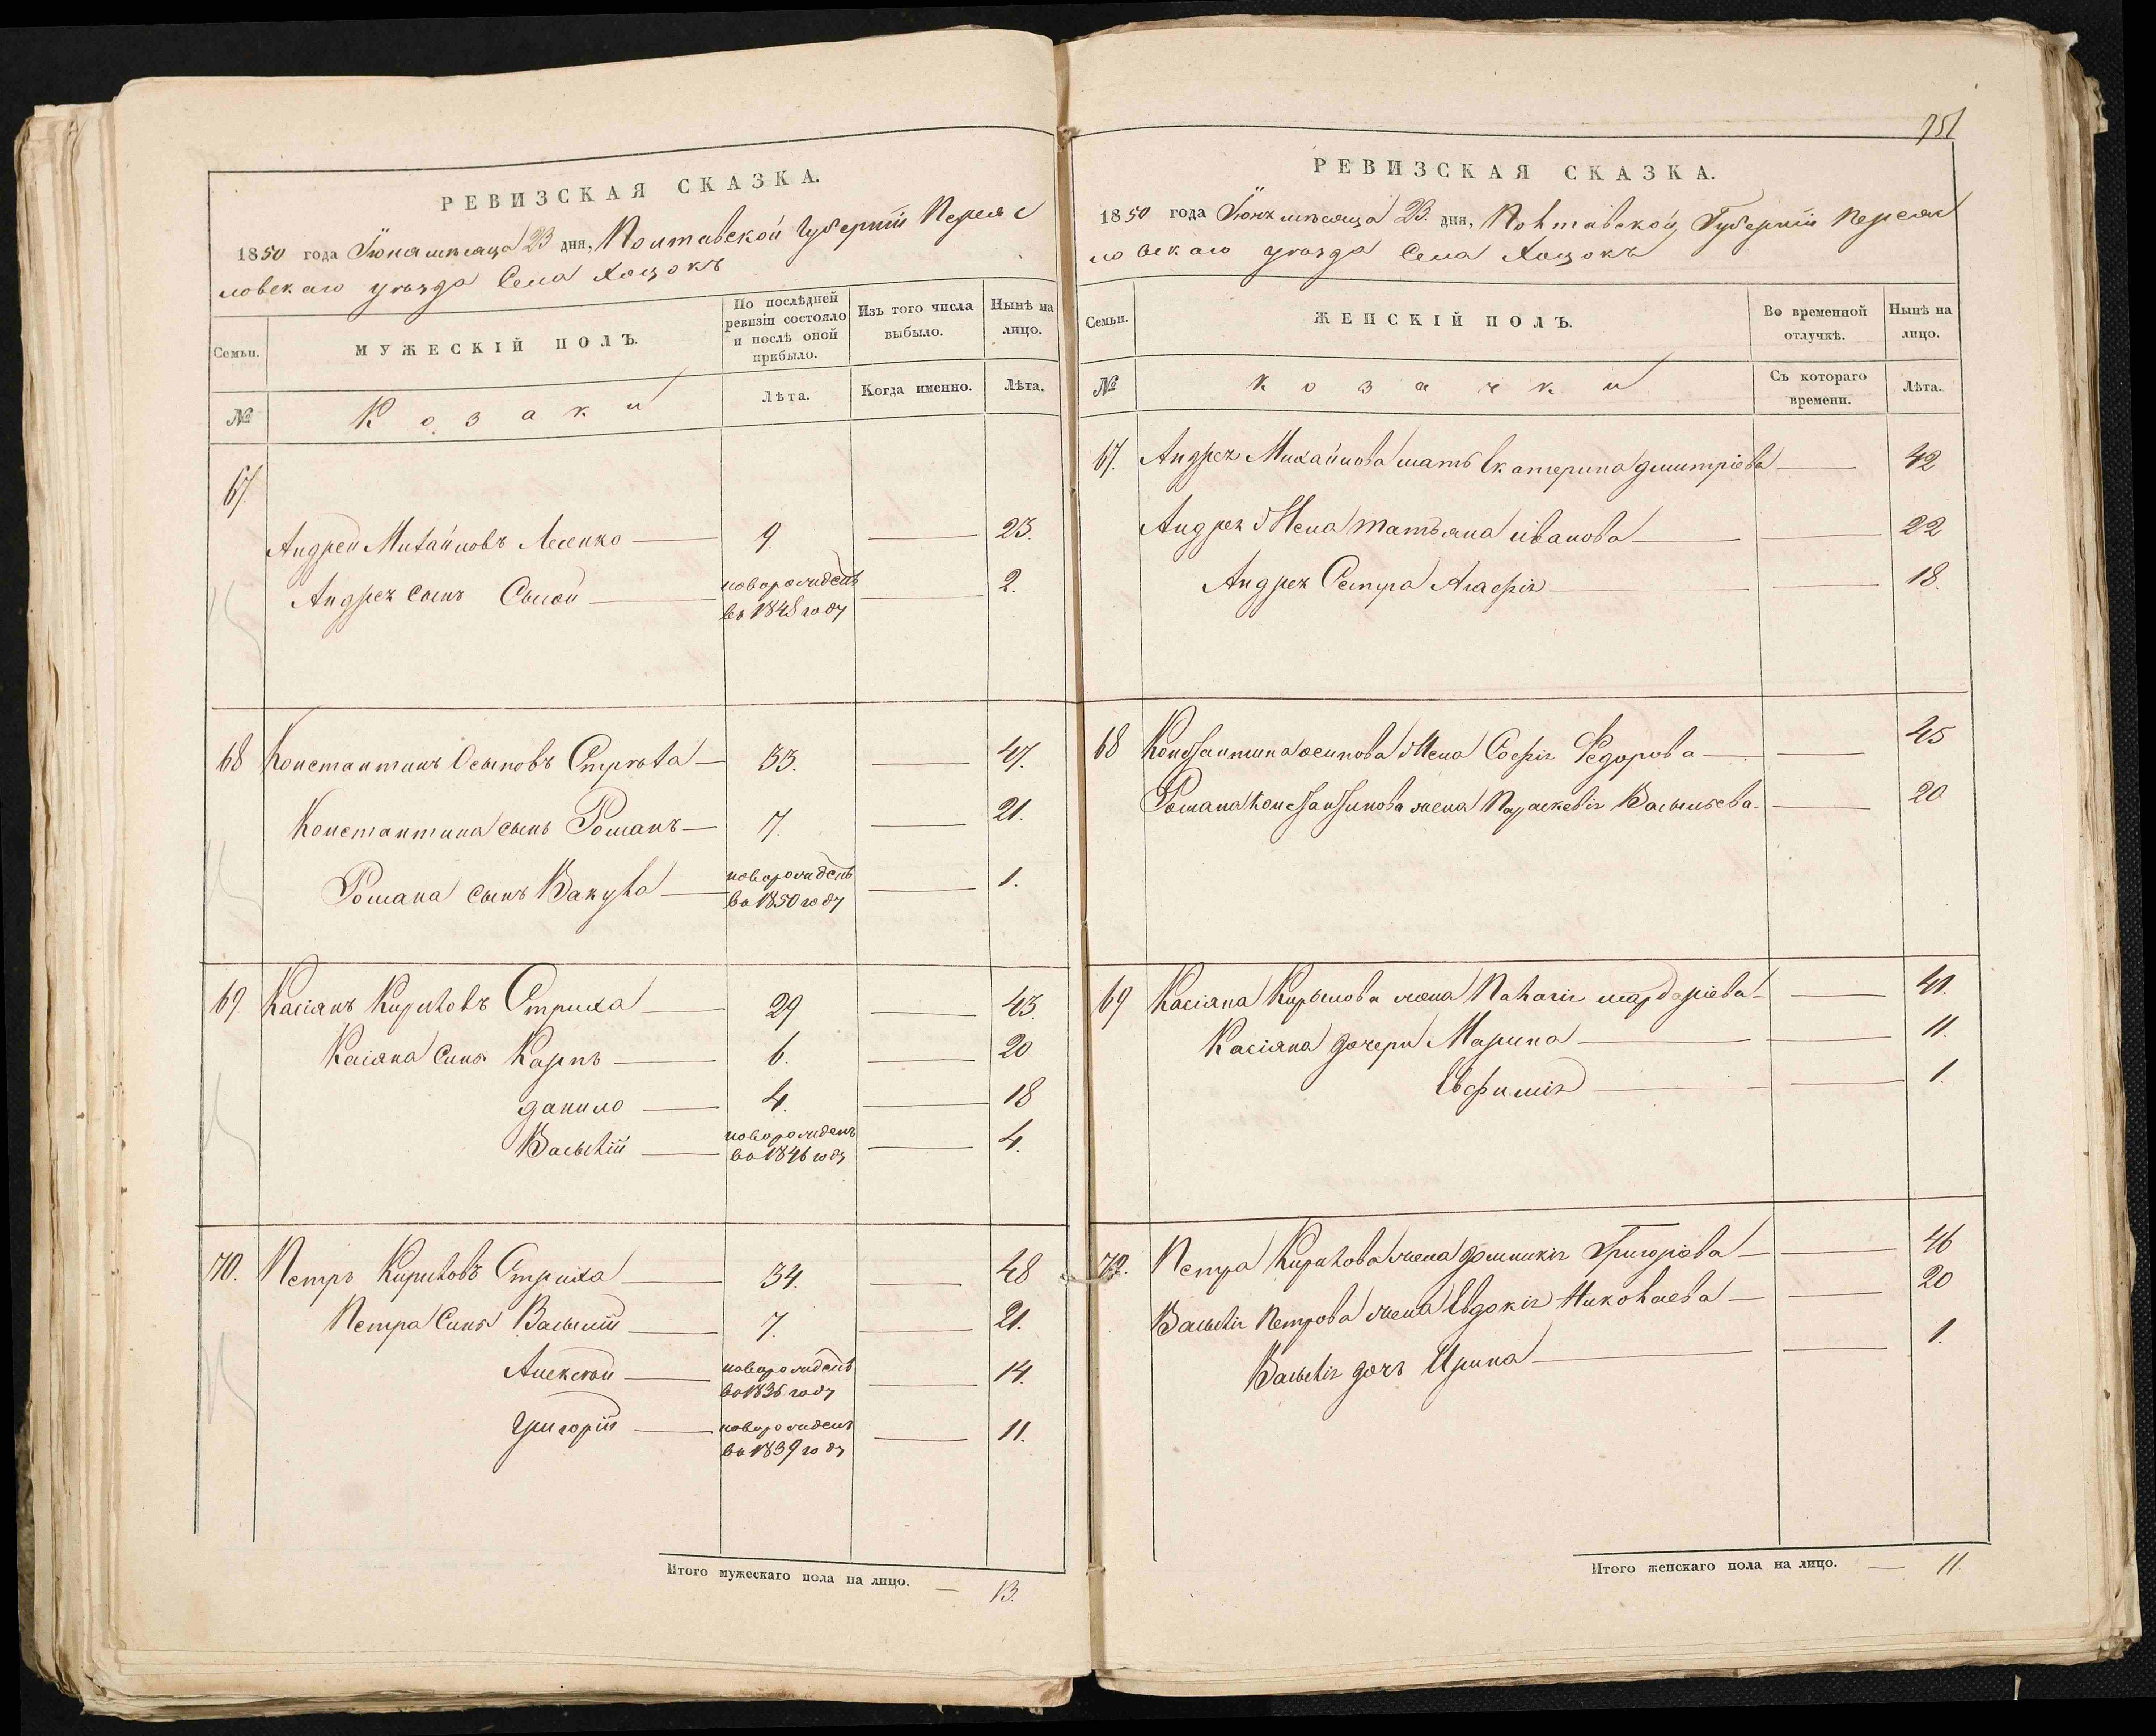 РЕВИЗСКАЯ СКАЗКА.
1850 года Іюня мѣсяца 23 дня, Полтавской Губерніи Переяс
ловскаго уѣзда Села Хоцокъ
Семьи.
МУЖЕСКІЙ ПОЛЪ.
По послѣдней ревизіи состояло и послѣ оной прибыло.
Изъ того числа выбыло.
Нынѣ на лицо.
№
Козаки
Лѣта.
Когда именно.
Лѣта.
67.
Андрей Михайловъ — 9. — 23.
Андрея сынъ — новорожденъ въ 1848 году — 2.
68 Константинъ Осиповъ — 33. — 47.
Константина сынъ Романъ — 7. — 21.
Романа сынъ Вакула — новорожденъ въ 1850 году — 1.
69. Касіянъ Кириловъ Стриха — 29 — 43.
Касіяна сыны Карпъ — 6. — 20
Данило — 4. — 18
Василій — новорожденъ въ 1846 году — 4.
70. Петръ Кириловъ Стриха — 34. — 48
Петра сыны Василій — 7. — 21.
Алексѣй — новорожденъ въ 1836 году — 14.
Григорій — новорожденъ въ 1839 году — 11.
Итого мужескаго пола на лицо. — 13.
751
РЕВИЗСКАЯ СКАЗКА.
1850 года Іюня мѣсяца 23. дня, Полтавской Губерніи Переяс
ловскаго уѣзда Села Хоцокъ
Семьи.
ЖЕНСКІЙ ПОЛЪ.
Во временной отлучкѣ.
Нынѣ на лицо.
№
Козачки
Съ котораго времени.
Лѣта.
67. Андрея Михайлова мать Екатерина Дмитріева — 42
Андрея Жена Татьяна Иванова — — 22
Андрея Сестра Агафія — — 18.
68 Константина Осипова Жена Софія Федорова — — 45
Романа Константинова жена Параскевія Васильева — 20
69 Касіяна Кирилова жена Палагія Мардаріева — — 41.
Касіяна дочери Марина — — 11.
Евфимія — — 1.
70. Петра Кирилова жена Домникія Григоріева — — 46
Василія Петрова жена Евдокія Николаева — — 20
Василія дочь Ирина — — 1.
Итого женскаго пола на лицо. — 11.